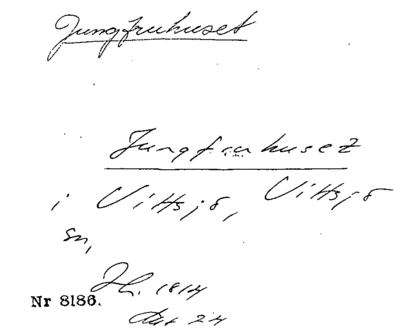 Jungfruhuset
Jungfruhuset
i Vittsjö, Vittsjö
sn,
Jh. 1814
Akt 24
Nr 8186.